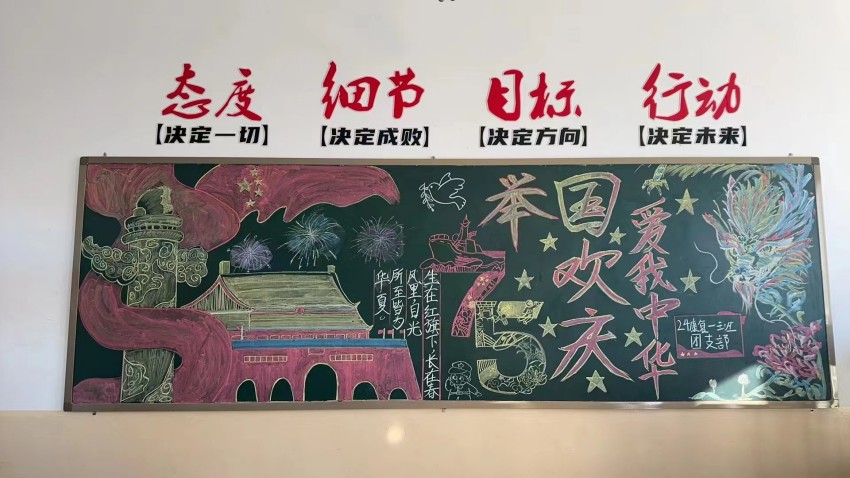 态度 细节 目标 行动
【决定一切】 【决定成败】 【决定方向】 【决定未来】
生在红旗下长在春
风里目光
所至皆为
华夏。
75
举国欢庆
爱我中华
24康复一三班
团支部